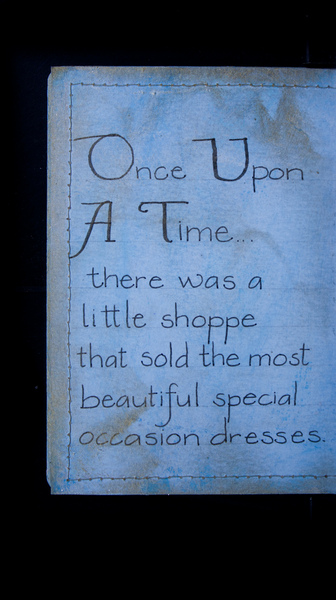 Once Upon
A Time...
there was a
little shoppe
that sold the most
beautiful special
occasion dresses.